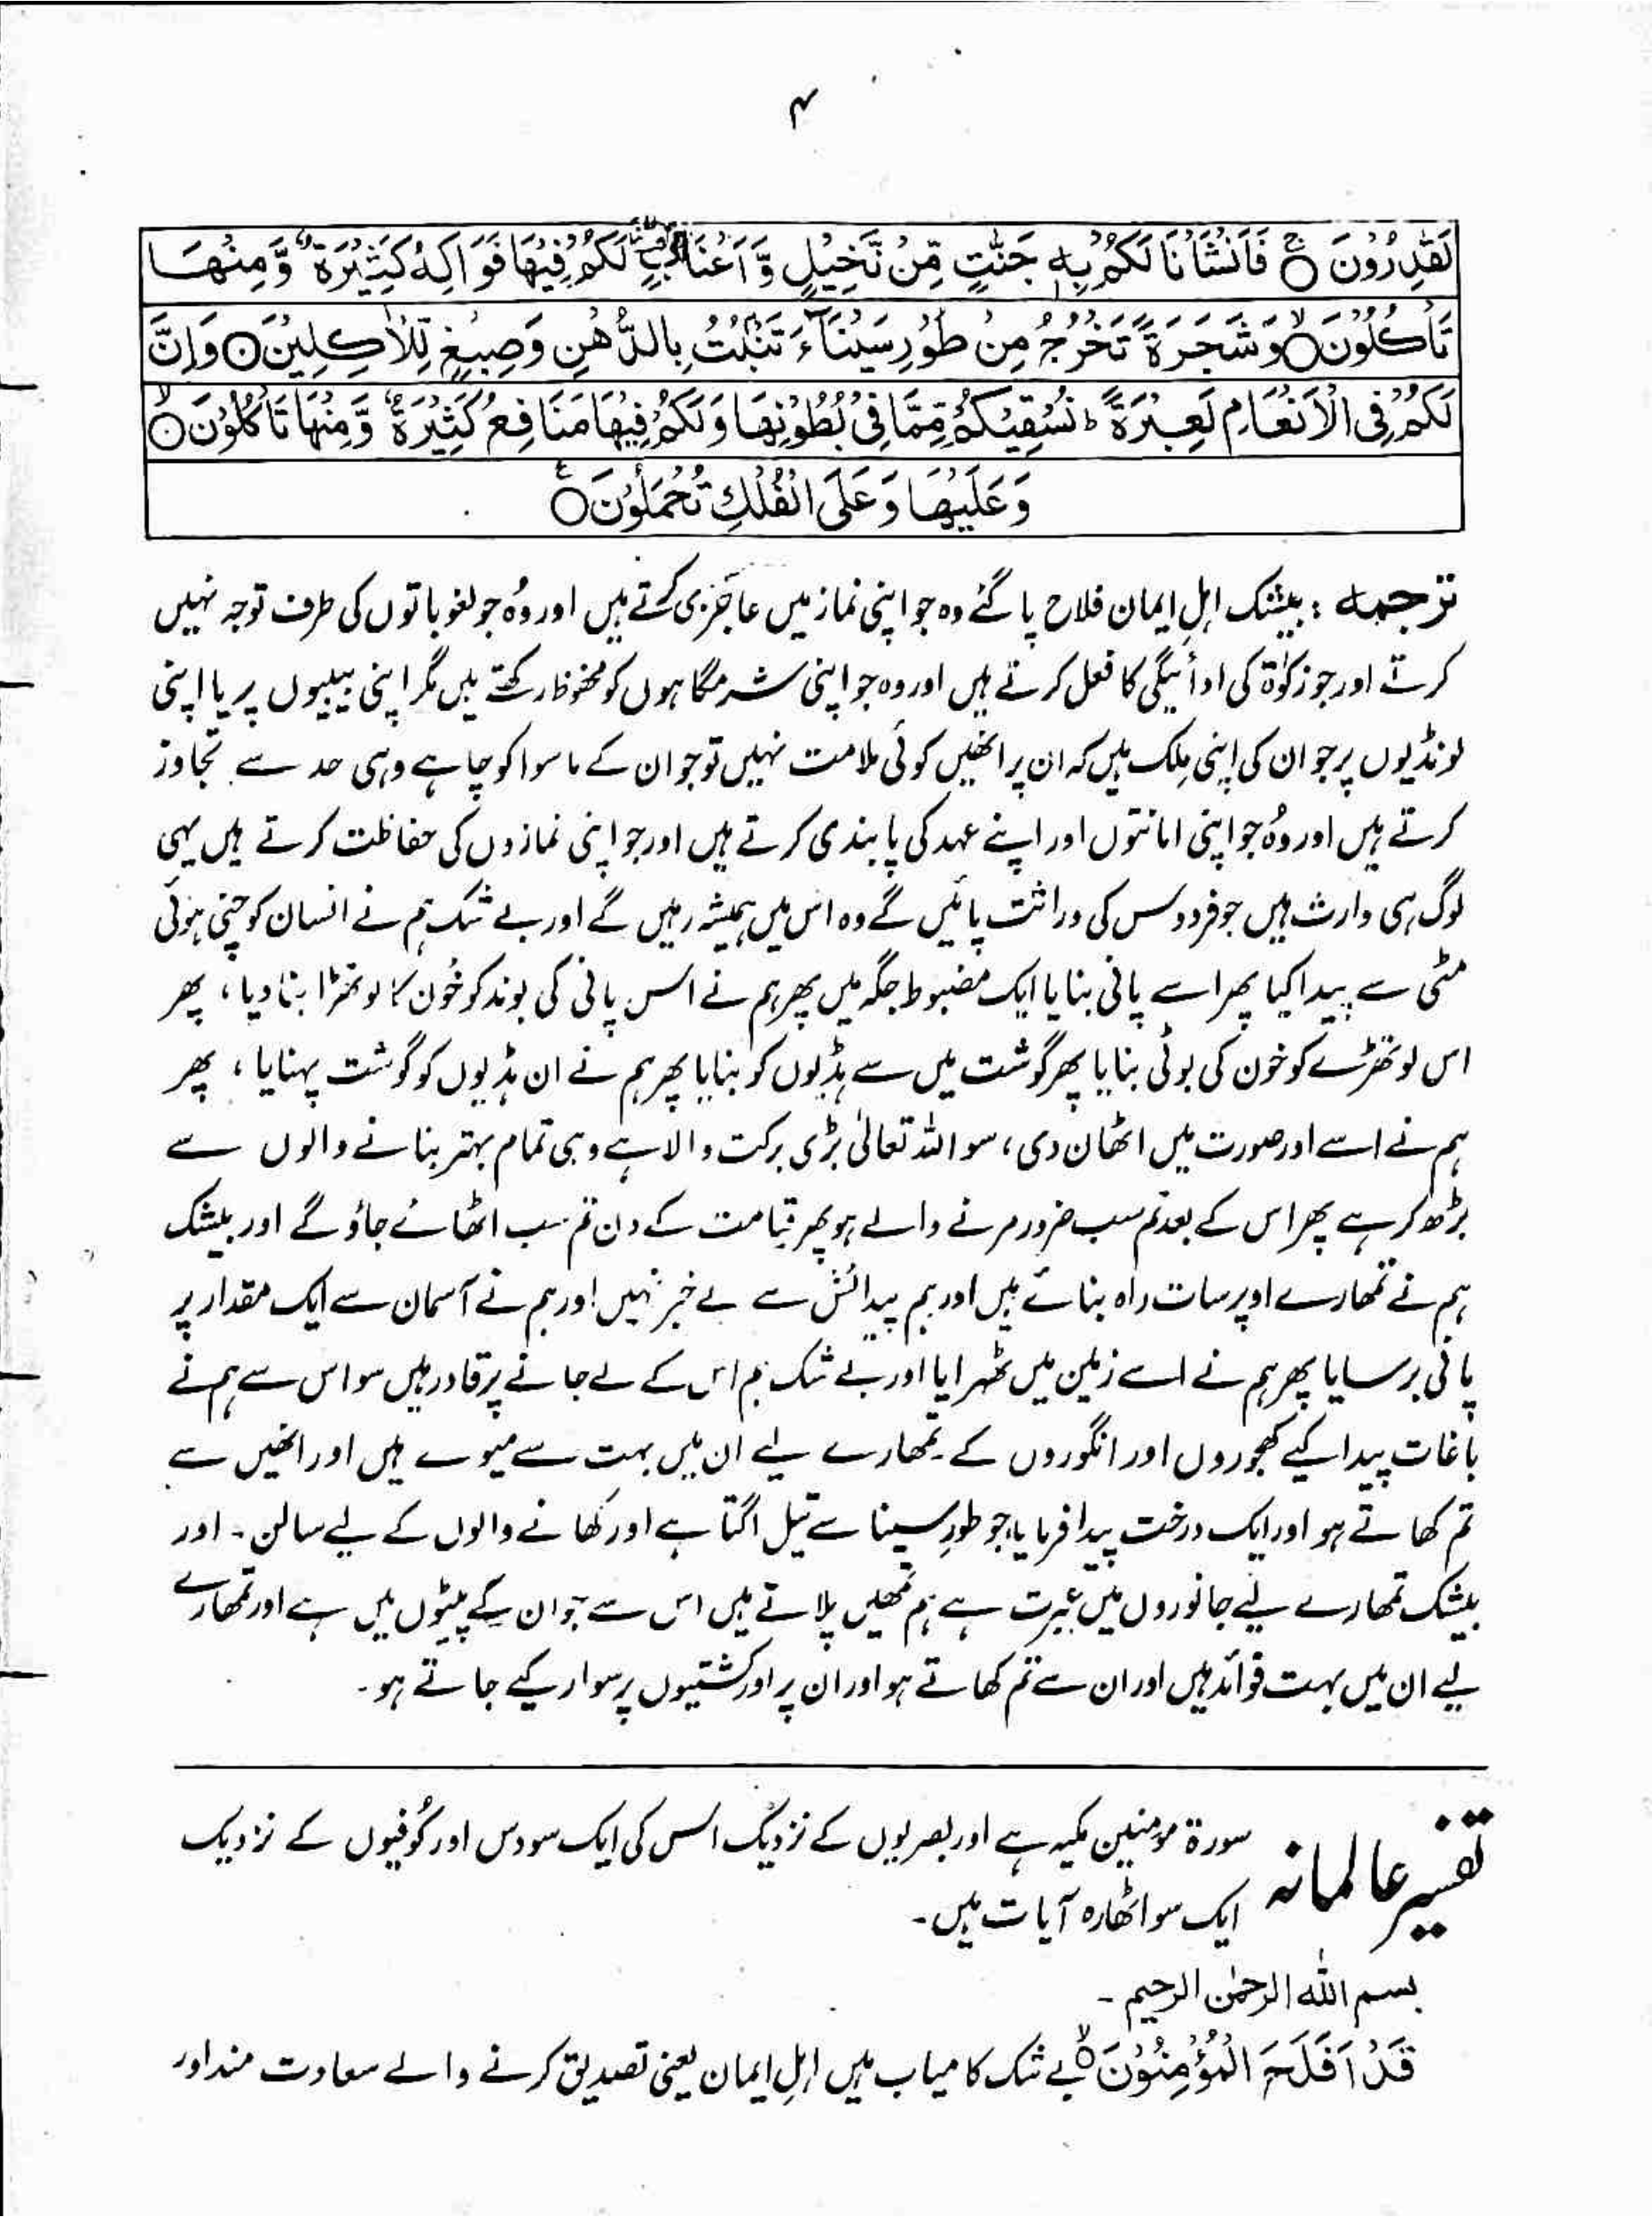 ۴
لَقٰدِرُوْنَ ۝ فَاَنْشَاْنَا لَكُمْ بِهٖ جَنّٰتٍ مِّنْ نَّخِيْلٍ وَّاَعْنَابٍ لَكُمْ فِيْهَا فَوَاكِهُ كَثِيْرَةٌ وَّمِنْهَا
تَاْكُلُوْنَ ۝ وَشَجَرَةً تَخْرُجُ مِنْ طُوْرِ سَيْنَآءَ تَنْۢبُتُ بِالدُّهْنِ وَصِبْغٍ لِّلْاٰكِلِيْنَ ۝ وَاِنَّ
لَكُمْ فِى الْاَنْعَامِ لَعِبْرَةً ؕ نُسْقِيْكُمْ مِّمَّا فِىْ بُطُوْنِهَا وَلَكُمْ فِيْهَا مَنَافِعُ كَثِيْرَةٌ وَّمِنْهَا تَاْكُلُوْنَ ۝
وَعَلَيْهَا وَعَلَى الْفُلْكِ تُحْمَلُوْنَ ۝
ترجمہ : بیشک اہلِ ایمان فلاح پا گئے وہ جو اپنی نماز میں عاجزی کرتے ہیں اور وُہ جو لغو باتوں کی طرف توجہ نہیں
کرتے اور جو زکوٰۃ کی ادائیگی کا فعل کرتے ہیں اور وہ جو اپنی شرمگاہوں کو محفوظ رکھتے ہیں مگر اپنی بیبیوں پر یا اپنی
لونڈیوں پر جو ان کی اپنی مِلک ہیں کہ ان پر انھیں کوئی ملامت نہیں تو جو ان کے ماسوا کو چاہے وہی حد سے تجاوز
کرتے ہیں اور وُہ جو اپنی امانتوں اور اپنے عہد کی پابندی کرتے ہیں اور جو اپنی نمازوں کی حفاظت کرتے ہیں یہی
لوگ ہی وارث ہیں جو فردوس کی وراثت پائیں گے وہ اس میں ہمیشہ رہیں گے اور بے شک ہم نے انسان کو چنی ہوئی
مٹی سے پیدا کیا پھر اسے پانی بنایا ایک مضبوط جگہ میں پھر ہم نے اس پانی کی بوند کو خُون کا لوتھڑا بنا دیا، پھر
اس لوتھڑے کو خون کی بوٹی بنایا پھر گوشت میں سے ہڈیوں کو بنایا پھر ہم نے ان ہڈیوں کو گوشت پہنایا، پھر
ہم نے اسے اور صورت میں اٹھان دی، سو اللہ تعالیٰ بڑی برکت والا ہے وہی تمام بہتر بنانے والوں سے
بڑھ کر ہے پھر اس کے بعد تم سب ضرور مرنے والے ہو پھر قیامت کے دن تم سب اٹھائے جاؤ گے اور بیشک
ہم نے تمھارے اوپر سات راہ بنائے ہیں اور ہم پیدائش سے بے خبر نہیں اور ہم نے آسمان سے ایک مقدار پر
پانی برسایا پھر ہم نے اسے زمین میں ٹھہرایا اور بے شک ہم اس کے لے جانے پر قادر ہیں سو اس سے ہم نے
باغات پیدا کیے کھجوروں اور انگوروں کے۔ تمھارے لیے ان میں بہت سے میوے ہیں اور انھیں سے
تم کھاتے ہو اور ایک درخت پیدا فرمایا جو طورِ سینا سے تیل اگتا ہے اور کھانے والوں کے لیے سالن۔ اور
بیشک تمھارے لیے جانوروں میں عبرت ہے ہم تمھیں پلاتے ہیں اس سے جو ان کے پیٹوں میں ہے اور تمھارے
لیے ان میں بہت فوائد ہیں اور ان سے تم کھاتے ہو اور ان پر اور کشتیوں پر سوار کیے جاتے ہو۔
تفسیر عالمانہ سورۃ مومنین مکیہ ہے اور بصریوں کے نزدیک اس کی ایک سو دس اور کُوفیوں کے نزدیک
ایک سو اٹھارہ آیات ہیں۔
بسم اللہ الرحمٰن الرحیم۔
قَدْ اَفْلَحَ الْمُؤْمِنُوْنَ ۝ بے شک کامیاب ہیں اہلِ ایمان یعنی تصدیق کرنے والے سعادت مند اور